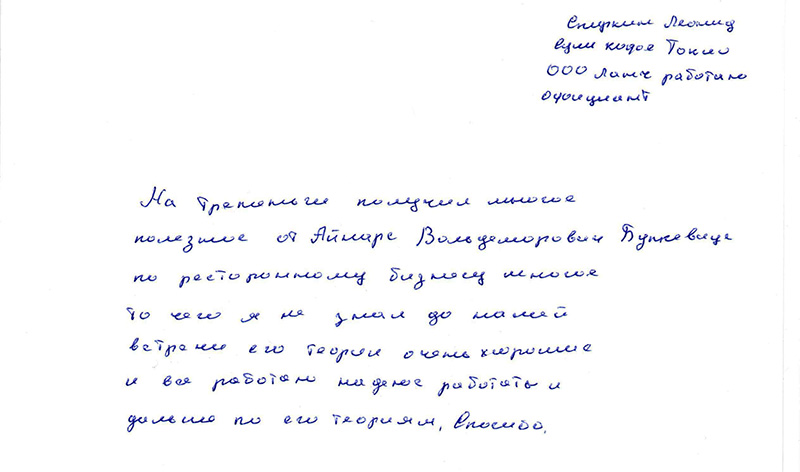 Спиркин Леонид
суши кафе Токио
ООО Ланч работаю
официант
На Трененьги получил многое
полезное от Айнарс Вольдеморович Бункевице
по ресторонному бизнесу многое
то чего я не знал до нашей
встречи его теории очень хорошие
и все работаю надеюс работать и
дальше по его теориям, Спосибо.